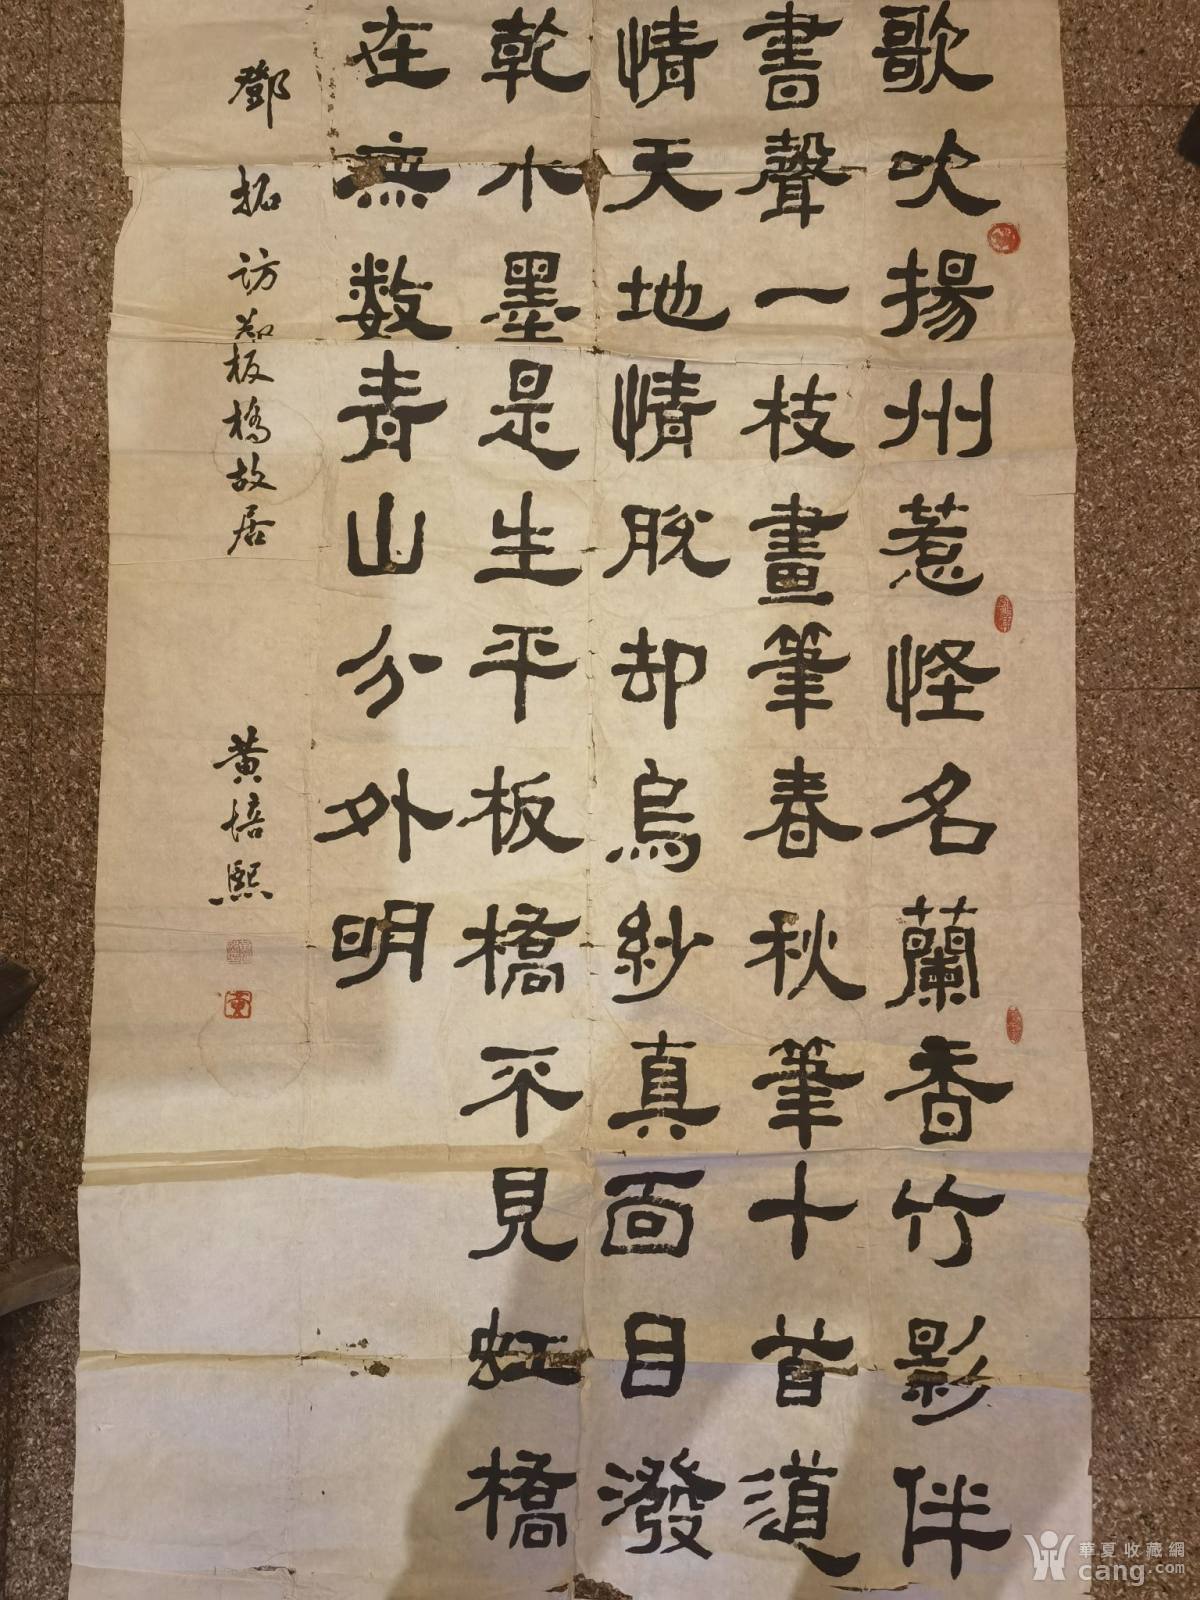 歌吹揚州惹怪名蘭香竹影伴
書聲一枝畫筆春秋筆十首道
情天地情脫却烏紗真面目潑
乾水墨是生平板橋不見虹橋
在無數青山分外明
鄧拓訪鄭板橋故居
黄培熙
華夏收藏網
cang.com